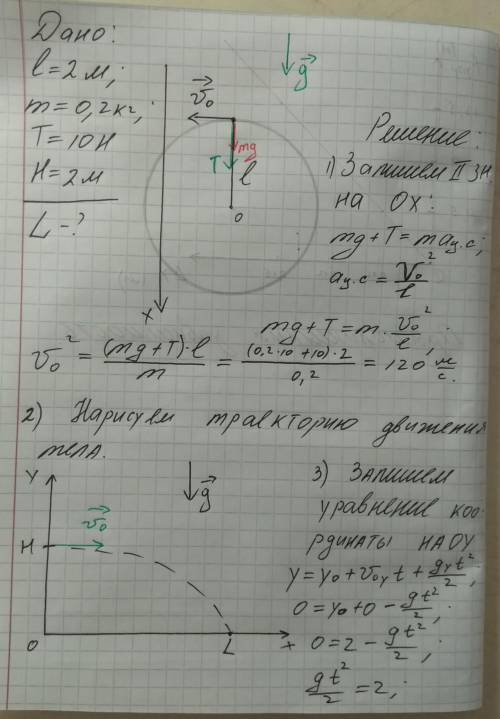 Дано:
l = 2 м;
m = 0,2 кг;
T = 10 Н
H = 2 м
L - ?
g
v₀
mg
T
l
o
X
Решение:
1) Запишем II ЗН
на OX:
mg + T = m aц.с;
aц.с = v₀²/l
mg + T = m · v₀²/l;
v₀² = (mg + T) · l / m = (0,2 · 10 + 10) · 2 / 0,2 = 120 м/с.
2) Нарисуем траекторию движения
тела.
Y
g
v₀
H
O
L
X
3) Запишем
уравнение коо-
рдинаты на OY
y = y₀ + v₀y t + gy t²/2;
0 = y₀ + 0 - gt²/2;
0 = 2 - gt²/2;
gt²/2 = 2;